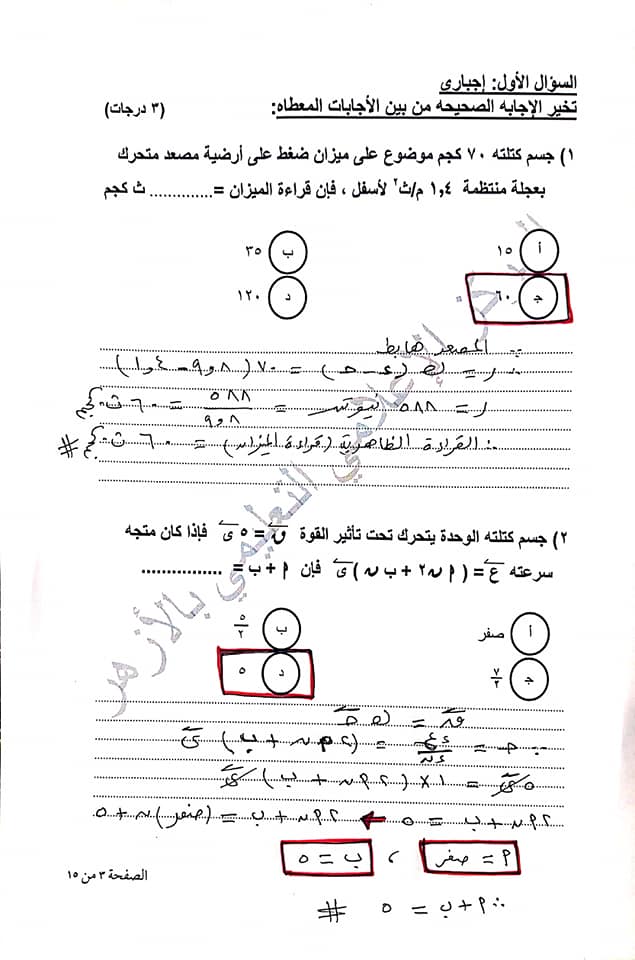 السؤال الأول: إجبارى
تخير الإجابه الصحيحه من بين الأجابات المعطاه: (٣ درجات)
١) جسم كتلته ٧٠ كجم موضوع على ميزان ضغط على أرضية مصعد متحرك
بعجلة منتظمة ١,٤ م/ث٢ لأسفل ، فإن قراءة الميزان =.............. ث كجم
أ ١٥ ب ٣٥
ج ٦٠ د ١٢٠
∵ المصعد هابط
∴ ر = ك (ء - ح) = ٧٠ (٩,٨ - ١,٤)
ر = ٥٨٨ نيوتن = ٥٨٨/٩,٨ = ٦٠ ث.كجم
∴ القراءة الظاهرية (قراءة الميزان) = ٦٠ ث.كجم #
٢) جسم كتلته الوحدة يتحرك تحت تأثير القوة ق = ٥ ى فإذا كان متجه
سرعته ع = (أ ن٢ + ب ن) ى فإن أ + ب = ................
أ صفر ب ٥/٢
ج ٧/٢ د ٥
ق = ك ح
∵ ح = ءع/ءن = (٢ أ ن + ب) ى
٥ ى = ١ × (٢ أ ن + ب) ى
٢ أ ن + ب = ٥ ← ٢ أ ن + ب = (صفر) ن + ٥
أ = صفر ، ب = ٥
∴ أ + ب = ٥ #
الصفحة ٣ من ١٥
التعليمي بالأزهر